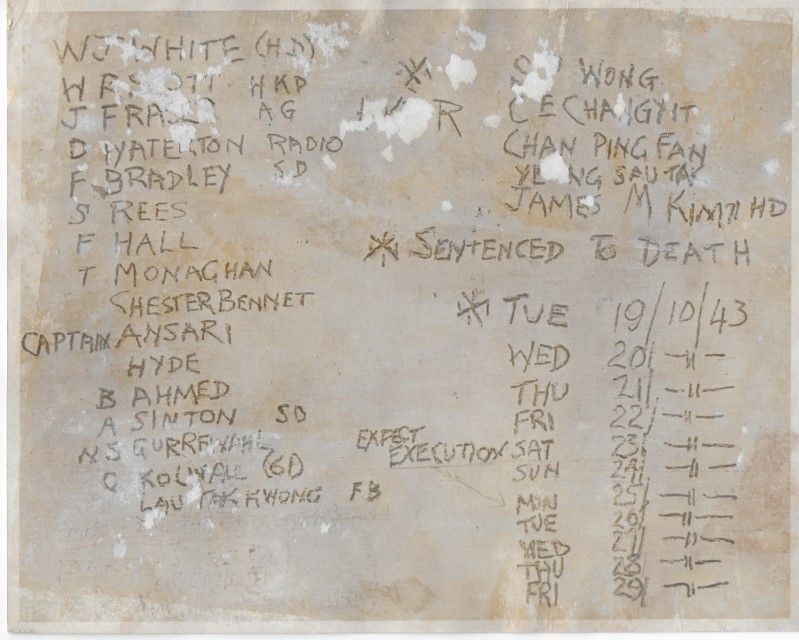 WJ WHITE (HD)
W R SCOTT HKD
J FRASER AG
D WATERTON RADIO
F BRADLEY SD
S REES
F HALL
T MONAGHAN
CHESTER BENNET
CAPTAIN ANSARI
HYDE
B AHMED
A SINTON SD
N S GURREWAHL
C KOLWALL (GD)
LAU TAK KWONG FB
WONG
C E CHANGYIT
CHAN PING FAN
SAU TAK
JAMES M KIM71 HD
SENTENCED TO DEATH
TUE 19/10/43
WED 20/ —〃—
THU 21/ —〃—
FRI 22/ —〃—
EXPECT
EXECUTION SAT 23/ —〃—
SUN 24/ —〃—
MON 25/ —〃—
TUE 26/ —〃—
WED 27/ —〃—
THU 28/ —〃—
FRI 29/ —〃—